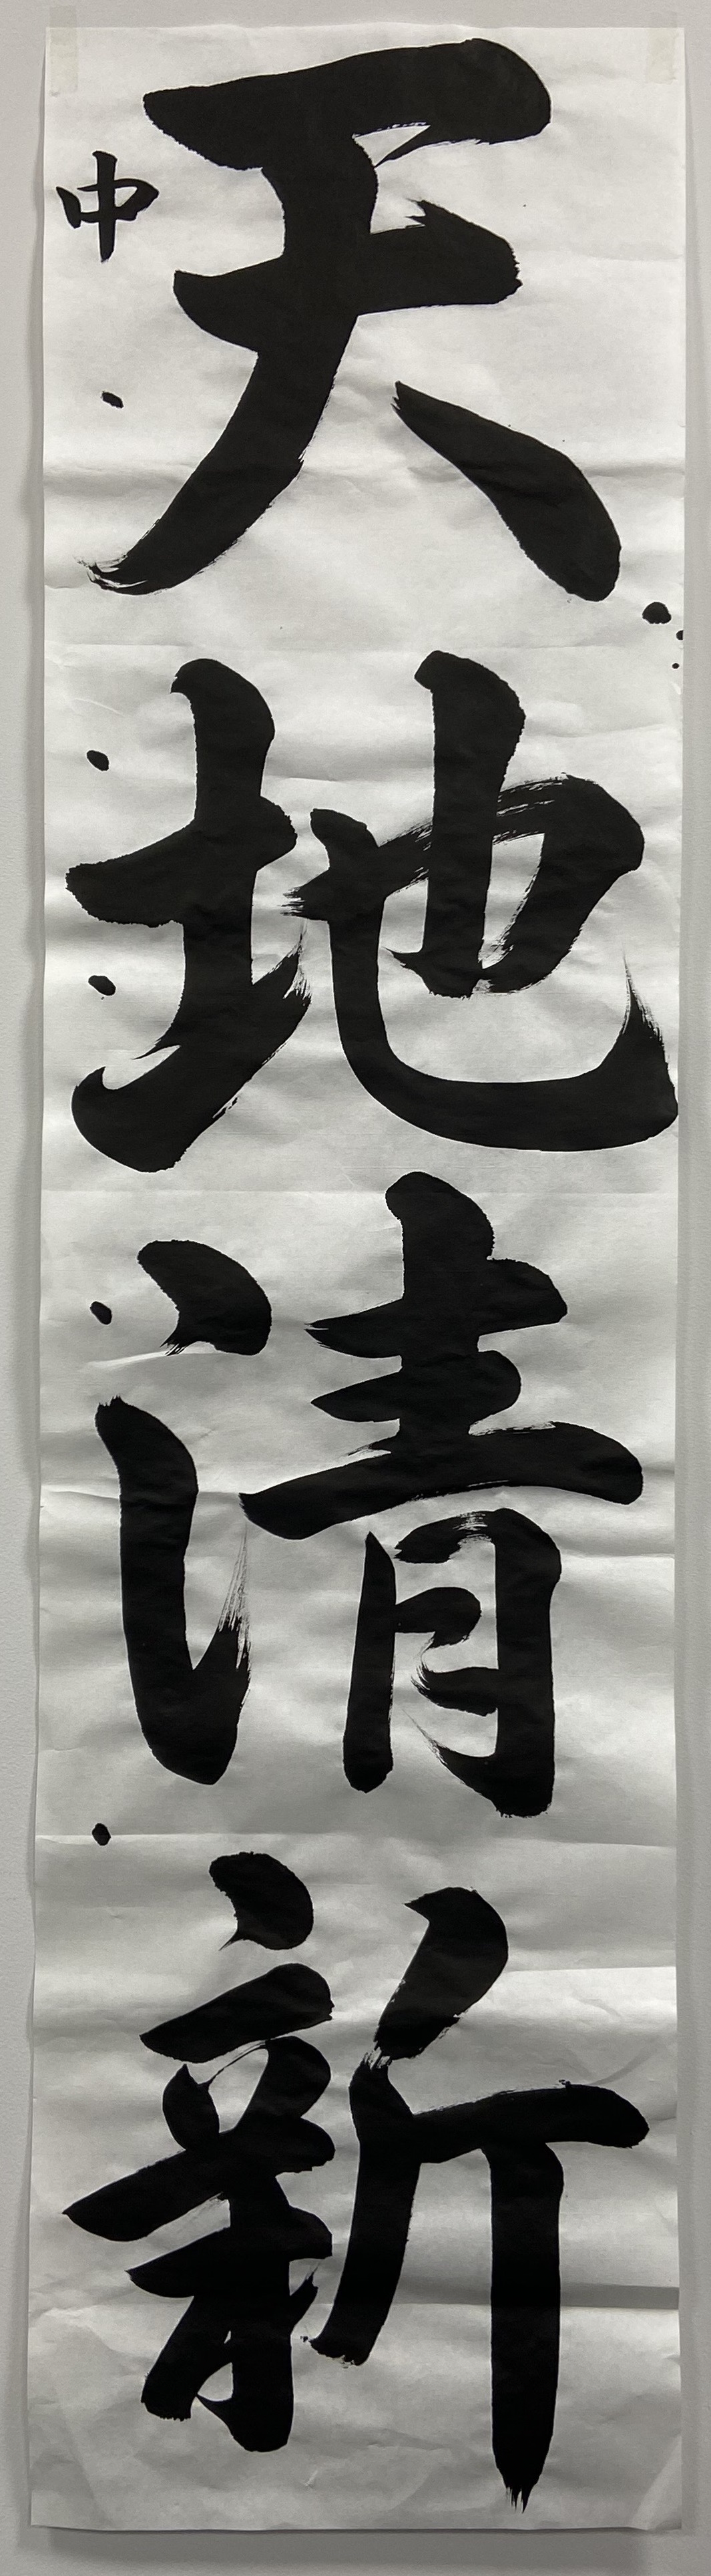 天地清新
中